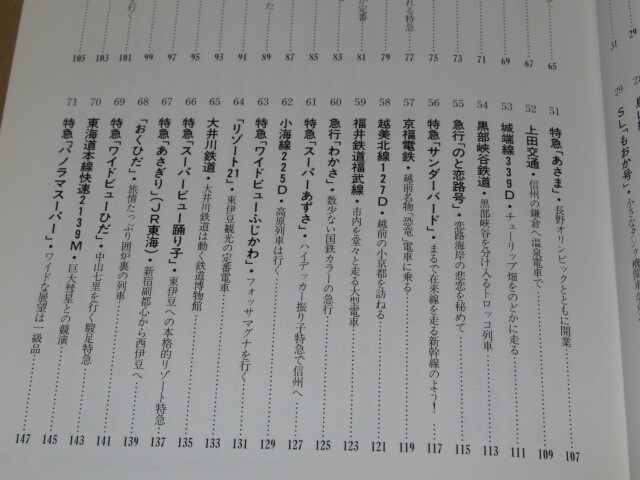 て
れる特急
が定番
た
を行く
65
67
69
71
73
75
77
79
81
83
85
87
89
91
93
95
97
99
101
103
105
51 特急「あさま」・長野オリンピックとともに開業 107
52 上田交通・信州の鎌倉へ温泉電車で 109
53 城端線339D・チューリップ畑をのどかに走る 111
54 黒部峡谷鉄道・黒部峡谷を分け入るトロッコ列車 113
55 急行「のと恋路号」・恋路海岸の悲恋を秘めて 115
56 特急「サンダーバード」・まるで在来線を走る新幹線のよう! 117
57 京福電鉄・越前名物「恐竜」電車に乗る 119
58 越美北線127D・越前の小京都を訪ねる 121
59 福井鉄道福武線・市内を堂々と走る大型電車 121
60 急行「わかさ」・数少ない国鉄カラーの急行 123
61 特急「スーパーあずさ」・ハイデッカー振り子特急で信州へ 125
62 小海線225D・高原列車は行く 127
63 特急「ワイドビューふじかわ」・フォッサマグナを行く 129
64 「リゾート21」・東伊豆観光の定番電車 131
65 大井川鉄道・大井川鉄道は動く鉄道博物館 133
66 特急「スーパービュー踊り子」・東伊豆への本格的リゾート特急 135
67 特急「あさぎり」(JR東海)・新宿副都心から西伊豆へ 137
68 「おくひだ」・旅情たっぷり囲炉裏の列車 139
69 特急「ワイドビューひだ」・中山七里を行く駿足特急 141
70 東海道本線快速2139M・巨大彗星との競演 143
71 特急「パノラマスーパー」・ワイドな展望は一級品 145
147
31
29
29 SL「もおか号」・小さな